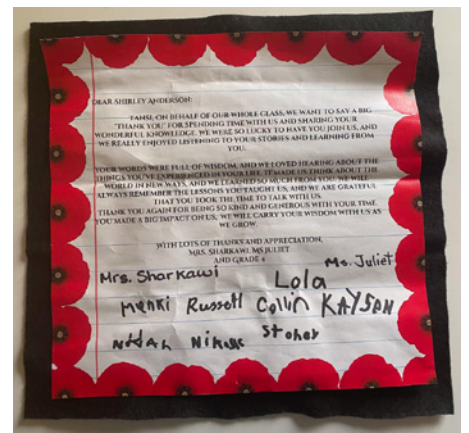 DEAR SHIRLEY ANDERSON:
TANSI, ON BEHALF OF OUR WHOLE CLASS, WE WANT TO SAY A BIG
"THANK YOU" FOR SPENDING TIME WITH US AND SHARING YOUR
WONDERFUL KNOWLEDGE. WE WERE SO LUCKY TO HAVE YOU JOIN US, AND
WE REALLY ENJOYED LISTENING TO YOUR STORIES AND LEARNING FROM
YOU.
YOUR WORDS WERE FULL OF WISDOM, AND WE LOVED HEARING ABOUT THE
THINGS YOU'VE EXPERIENCED IN YOUR LIFE. IT MADE US THINK ABOUT THE
WORLD IN NEW WAYS, AND WE LEARNED SO MUCH FROM YOU. WE WILL
ALWAYS REMEMBER THE LESSONS YOU TAUGHT US, AND WE ARE GRATEFUL
THAT YOU TOOK THE TIME TO TALK WITH US.
THANK YOU AGAIN FOR BEING SO KIND AND GENEROUS WITH YOUR TIME.
YOU MADE A BIG IMPACT ON US, WE WILL CARRY YOUR WISDOM WITH US AS
WE GROW.
WITH LOTS OF THANKS AND APPRECIATION,
MRS. SHARKAWI, MS JULIET
AND GRADE 4
Mrs. Sharkawi Ms. Juliet
Lola
Russell Collin KAYSEN